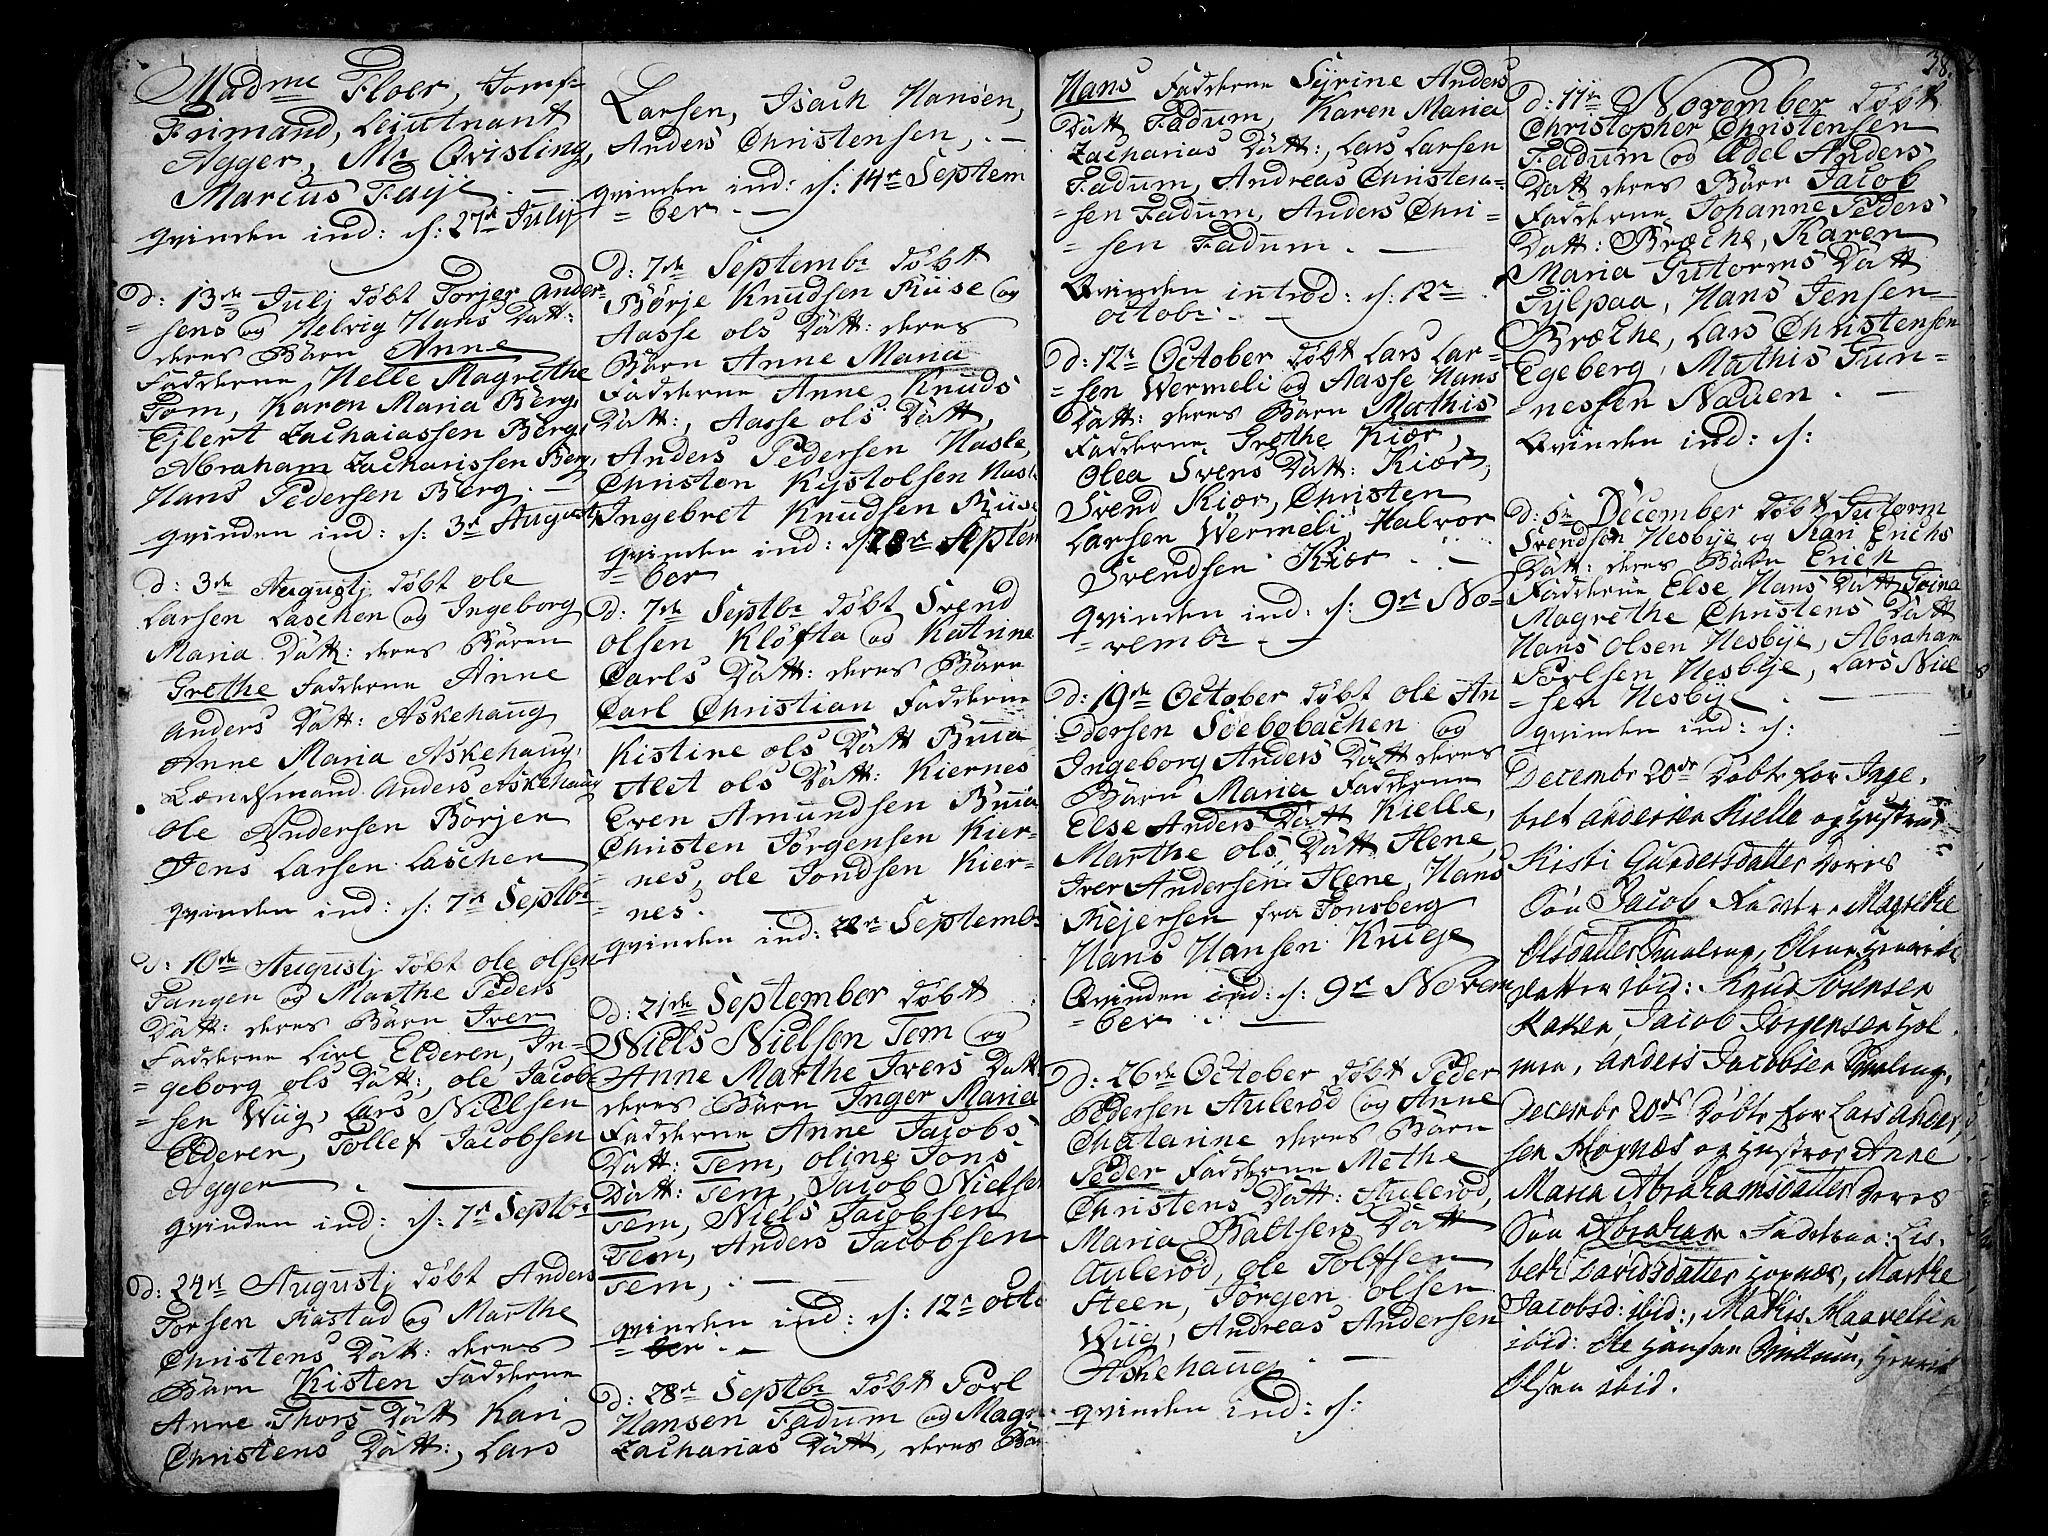 Madme Floer, Jomf:
Frimand, Leiutnant
Agger, Mr Qvisling,
Marcus Faÿe . —
qvinden ind: d: 27de Julÿ
d: 13de Julj döbt Torjer Ander-
= sens og Helvig Hans Datt:
deres Barn Anne
Fadderne, Helle Magrethe
Tom, Karen Maria Berg,
Ejlert Zachaiassen Berg,
Abraham Zacharissen Berg,
Hans Pedersen Berg . —
qvinden ind: d: 3de Augusti
d: 3de Augustj döbt ole
Larsen Laschen og Ingeborg
Maria Datt: deres Barn
Grethe Fadderne Anne
Anders Datt: Askehaug
Anne Maria Askehaug,
Lændsmand Anders Askehaug
Ole Andersen Borjen
Jens Larsen Laschen
qvinden ind: d: 7de Septbr
d: 10de Augustj döbt ole olsen
Tangen og Marthe Peders
Datt: deres Barn Iver
Fadderne Live Elderen, In-
= geborg ols Datt:, ole Jacob-
= sen Wiig, Lars Nielsen
Elderen, Tollef Jacobsen
Agger . —
qvinden ind: d: 7de Septbr
d: 24de Augustj döbt Anders
Torsen Rastad og Marthe
Christens Datt: deres
Barn Kisten Fadderne
Anne Thors Datt Kari
Christens Datt:, Lars
Larsen, Isach Hansen,
Anders Christensen, . —
qvinden ind: d: 14de Septem
= ber . —
d: 7de Septembr döbt
Börje Knudsen Ruse og
Aasse ols Datt: deres
Barn Anne Maria
Fadderne Anne Knuds
Datt:, Aasse ols Datt,
Anders Pedersen Hasle,
Christen Kystolsen Hasle
Ingebret Knudsen Ruse
qvinden ind: d: 28de Septem
= ber
d: 7de Septbr döbt Svend
olsen Klöfta og Katrine
Carls Datt: deres Barn
Carl Christian Fadderne
Kistine ols Datt Buua
Alet ols Datt: Kiernes
Even Amundsen Buua
Christen Jörgensen Kier-
= nes, ole Jondsen Kier-
= nes. —
qvinden ind: 28de Septembr
d: 21de September döbt
Niels Nielsen Tem og
Anne Marthe Ivers Datt
deres Barn Inger Maria
Fadderne Anne Jacobs
Datt: Tem, oline Jons
Datt: Tem, Jacob Nielsen
Tem, Niels Jacobsen
Tem, Anders Jacobsen
Tem, . —
qvinden ind: d: 12te octo
= ber . —
d: 28de Septbr döbt Porl
Hansen Fadum og Magr
Zacharias Datt, deres Bar
Hans Fadderne Syrine Anders
Datt, Fadum, Karen Maria
Zacharias Datt:, Lars Larsen
Fadum, Andreas Christen-
= sen Fadum, Anders Chri-
= sen Fadum . —
Qvinden introd: d: 12te
octobr . —
d: 12te October döbt Lars Lar-
= sen Wermeli og Aasse Hans
Datt: deres Barn Mathis
Fadderne Grethe Kiær,
Olea Svens Datt: Kiær,
Svend Kiær, Christen
Larsen Wermeli Halvor
Svendsen Kiær . —
qvinden ind: d: 9de No-
= vembr . —
d: 19de October döbt ole An
= dersen Söebobachen og
Ingeborg Anders Datt deres
Barn Maria Fadderne
Else Anders Datt Kielle,
Marthe ols Datt: Flene,
Iver Andersen Flene, Hans
Rejersen fra Tonsberg
Hans Hansen Kruge
Qvinden ind: d: 9de Novem
= ber . —
d: 26de October döbt Peder
Pedersen Aulerød og Anne
Chatarine deres Barn
Peder Fadderne Methe
Christens Datt: Aulerød,
Maria Baltsers Datt
Aulerød, ole Tolfsen
Steen, Jörgen olsen
Wiig, Andreas Andersen
Askehaug . —
qvinden ind: d:
38.
d: 11te November döbt
Christopher Christensen
Fadum og Edel Anders
Datt deres Barn Jacob
Fadderne Johanne Peders
Datt: Bræche, Karen
Maria Gutorms Datt
Fylpaa, Hans Jensen
Bræche, Lars Christensen
Egeberg, Mathis Gun-
= nessen Nauen . —
Qvinden ind: d:
d: 5te December döbt Gutorm
Svendsen Nesbye og Kari Erichs
Datt: deres Barn Erich
Fadderne Else Hans Datt
Magrethe Christens Datt
Hans Olsen Nesbÿe, Abraham
Porlsen Nesbÿe, Lars Niel
= sen Nesbÿe . —
qvinden ind: d:
Decembr 20de Döbte for Inge-
bret Andersen Kielle og hustrue
Kisti Gundersdatter Deres
Sön Jacob Fadderne Magrethe
Olsdatter Smalrup,
datter ibid: Knud Sörensen
Jacob Jörgensen Hol-
men, Anders Jacobsen Smalrup.
Decembr 20de Döbte for Lars Ander-
sen Hoxnæs og Hustroe Anne
Maria Abrahamsdatter Deres
Sön Abraham Fadderne: Lis-
beth Davidsdatter Hoxnæs, Marthe
Jacobsd: ibid:, Mathis
ibid: Ole Hansen
Olsen ibid.